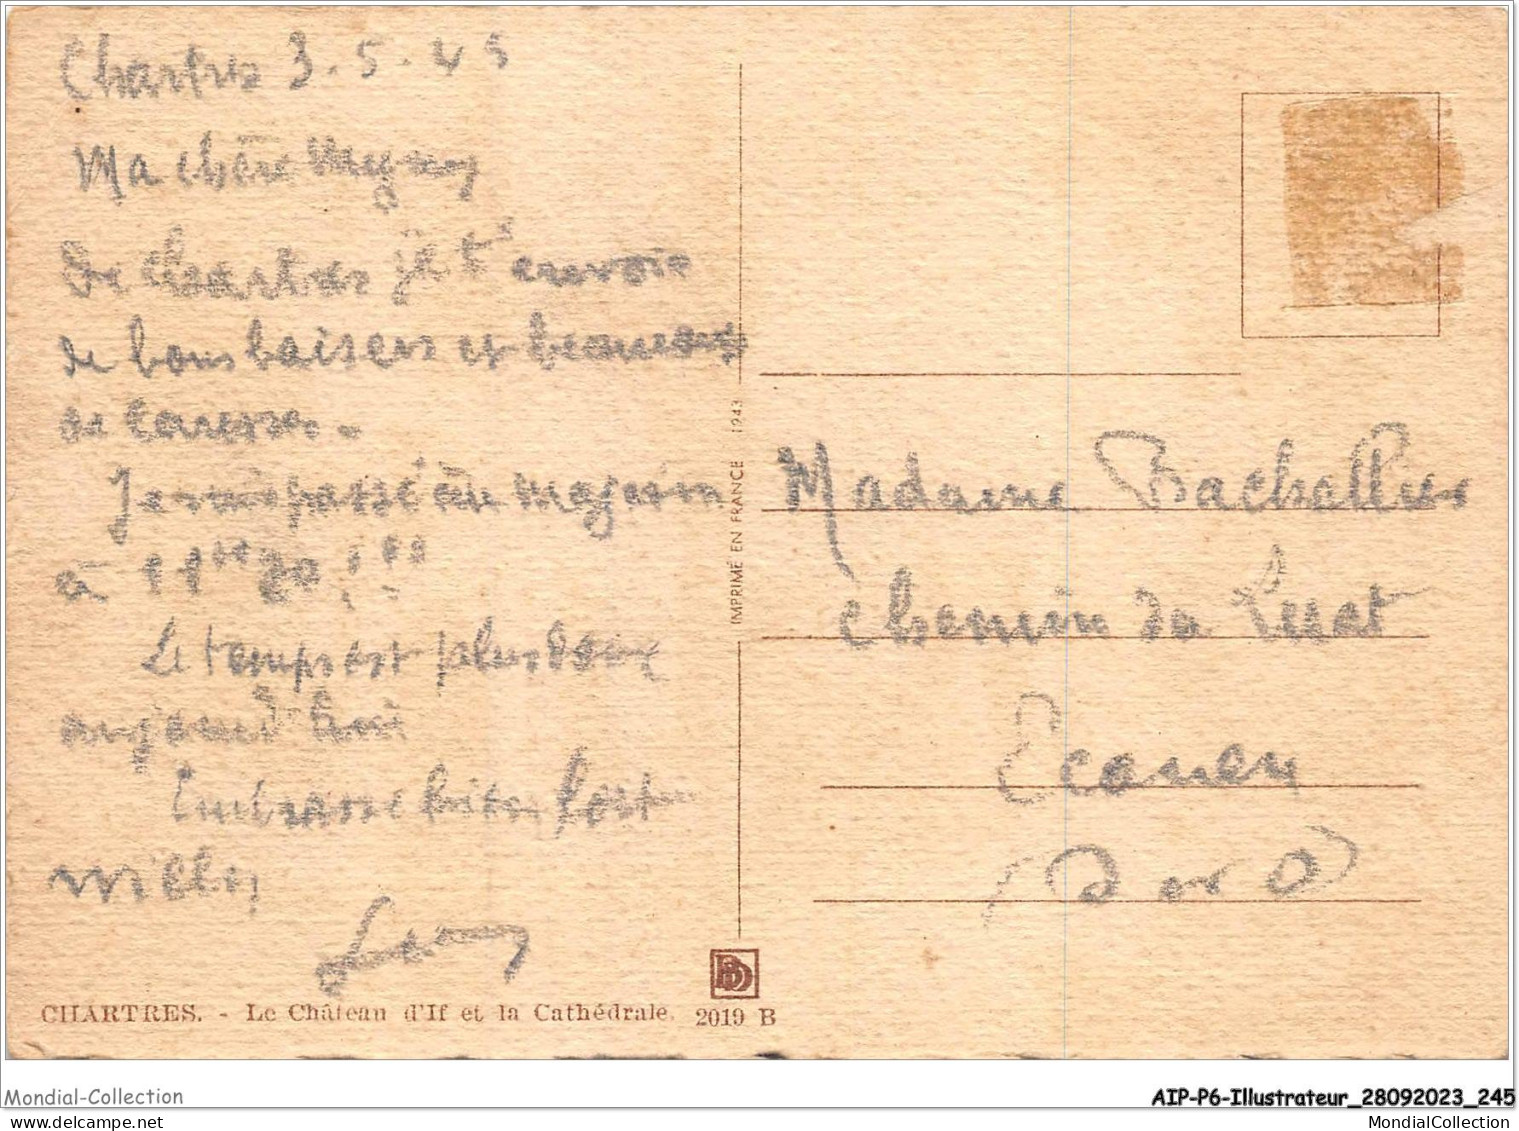 Chartres 3.5.45
Ma chère
De Chartres je t'envoie
de bons baisers et beaucoup
de caresses.
Je suis passé au magasin
à 11 20 !!!
Le temps est plus doux
aujourd'hui
Embrasse bien fort
IMPRIMÉ EN FRANCE 1943
Madame Bachellier
chemin du
Ecouen
CHARTRES. - Le Château d'If et la Cathédrale. 2019 B
Mondial-Collection
AIP-P6-Illustrateur_28092023_245
MondialCollection